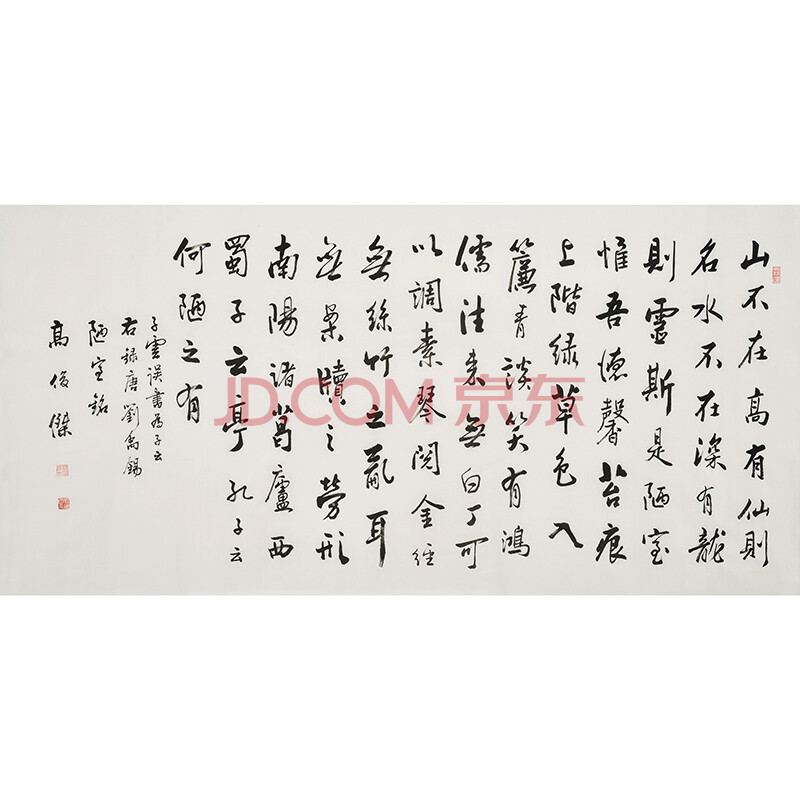 山不在高有仙則
名水不在深有龍
則靈斯是陋室
惟吾德馨苔痕
上階緑草色入
簾青談笑有鴻
儒往来無白丁可
以調素琴閲金經
無絲竹之亂耳
無案牘之勞形
南陽諸葛廬西
蜀子云亭孔子云
何陋之有
子雲誤書為子云
右録唐劉禹錫
陋室銘
高俊傑
JD.COM 京东